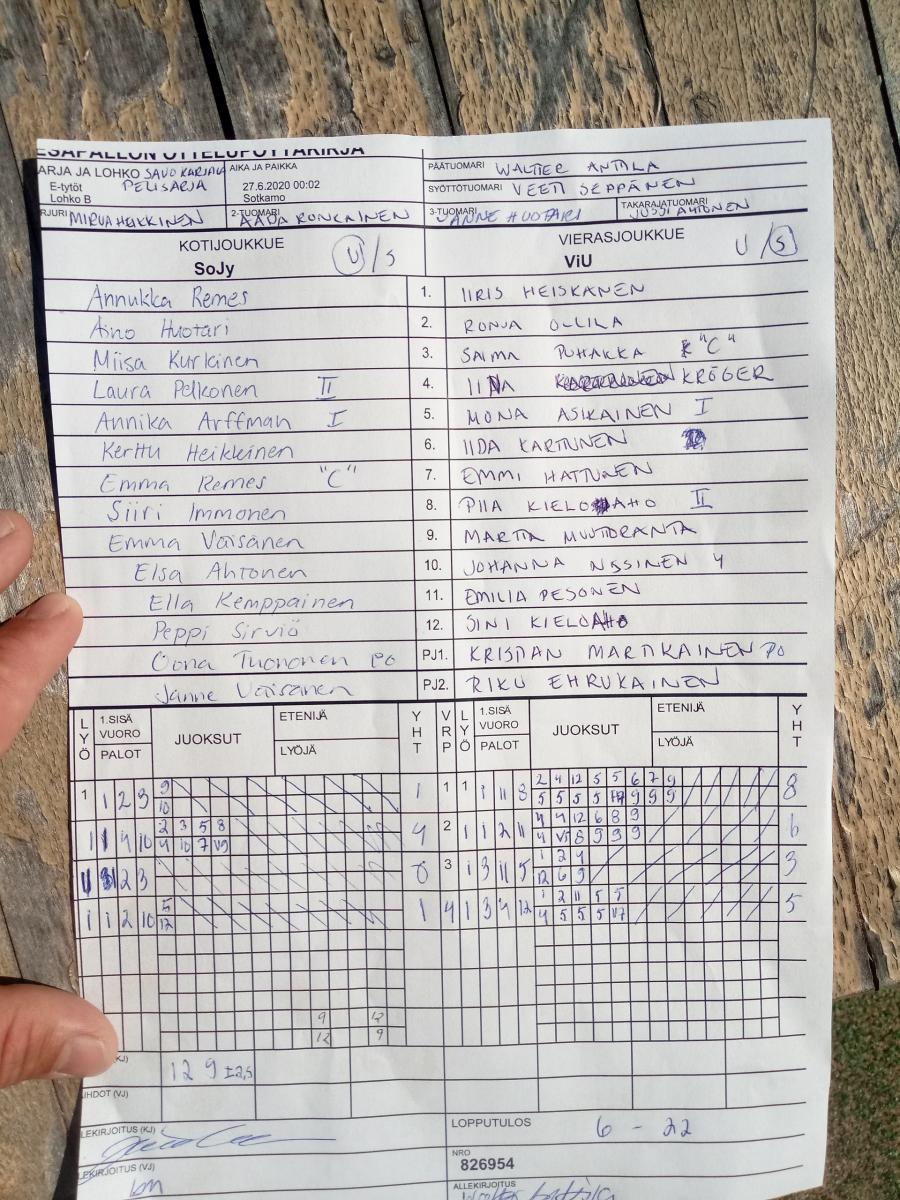 ESÄPALLON OTTELUPÖYTÄKIRJA
ARJA JA LOHKO SAVO KARJALA
PELISARJA
E-tytöt
Lohko B
AIKA JA PAIKKA
27.6.2020 00:02
Sotkamo
PÄÄTUOMARI WALTER ANTILA
SYÖTTÖTUOMARI VEETI SEPPÄNEN
RJURI MIRVA HEIKKINEN
2-TUOMARI AADA RONKAINEN
3-TUOMARI JANNE HUOTARI
TAKARAJATUOMARI JUSSI AHTONEN
KOTIJOUKKUE
SoJy U/S
VIERASJOUKKUE
ViU U/S
Annukka Remes 1. IIRIS HEISKANEN
Aino Huotari 2. RONJA OLLILA
Miisa Kurkinen 3. SAIMA PUHAKKA "C"
Laura Pelkonen II 4. IINA KRÖGER
Annika Arffman I 5. MONA ASIKAINEN I
Kerttu Heikkinen 6. IIDA KARTUNEN
Emma Remes "C" 7. EMMI HATTUNEN
Siiri Immonen 8. PIIA KIELOAHO II
Emma Väisänen 9. MARTTA MUSTORANTA
Elsa Ahtonen 10. JOHANNA NISSINEN
Ella Kemppainen 11. EMILIA PESONEN
Peppi Sirviö 12. SINI KIELOAHO
Oona Tuononen PO PJ1. KRISTIAN MARTIKAINEN PO
Janne Väisänen PJ2. RIKU EHRUKAINEN
LYÖ 1.SISÄ VUORO PALOT JUOKSUT ETENIJÄ LYÖJÄ YHT VRP LYÖ 1.SISÄ VUORO PALOT JUOKSUT ETENIJÄ LYÖJÄ YHT
9 2 4 12 5 5 6 7 9
1 1 2 3 1 1 1 1 11 8 8
10 5 5 5 5 9 9 9
2 3 5 8 4 4 12 6 8 9
1 1 4 10 4 2 1 1 2 11 6
4 10 7 V9 4 V5 8 9 9 9
1 2 4
2 3 0 3 1 3 11 5 3
12 6 9
5 1 2 11 5 5
1 1 2 10 1 4 1 3 4 12 5
12 4 5 5 5 V7
9 12
12 9
KJ)
12 9
IHDOT (VJ)
LEKIRJOITUS (KJ)
LOPPUTULOS 6 - 22
NRO
826954
LEKIRJOITUS (VJ)
ALLEKIRJOITUS